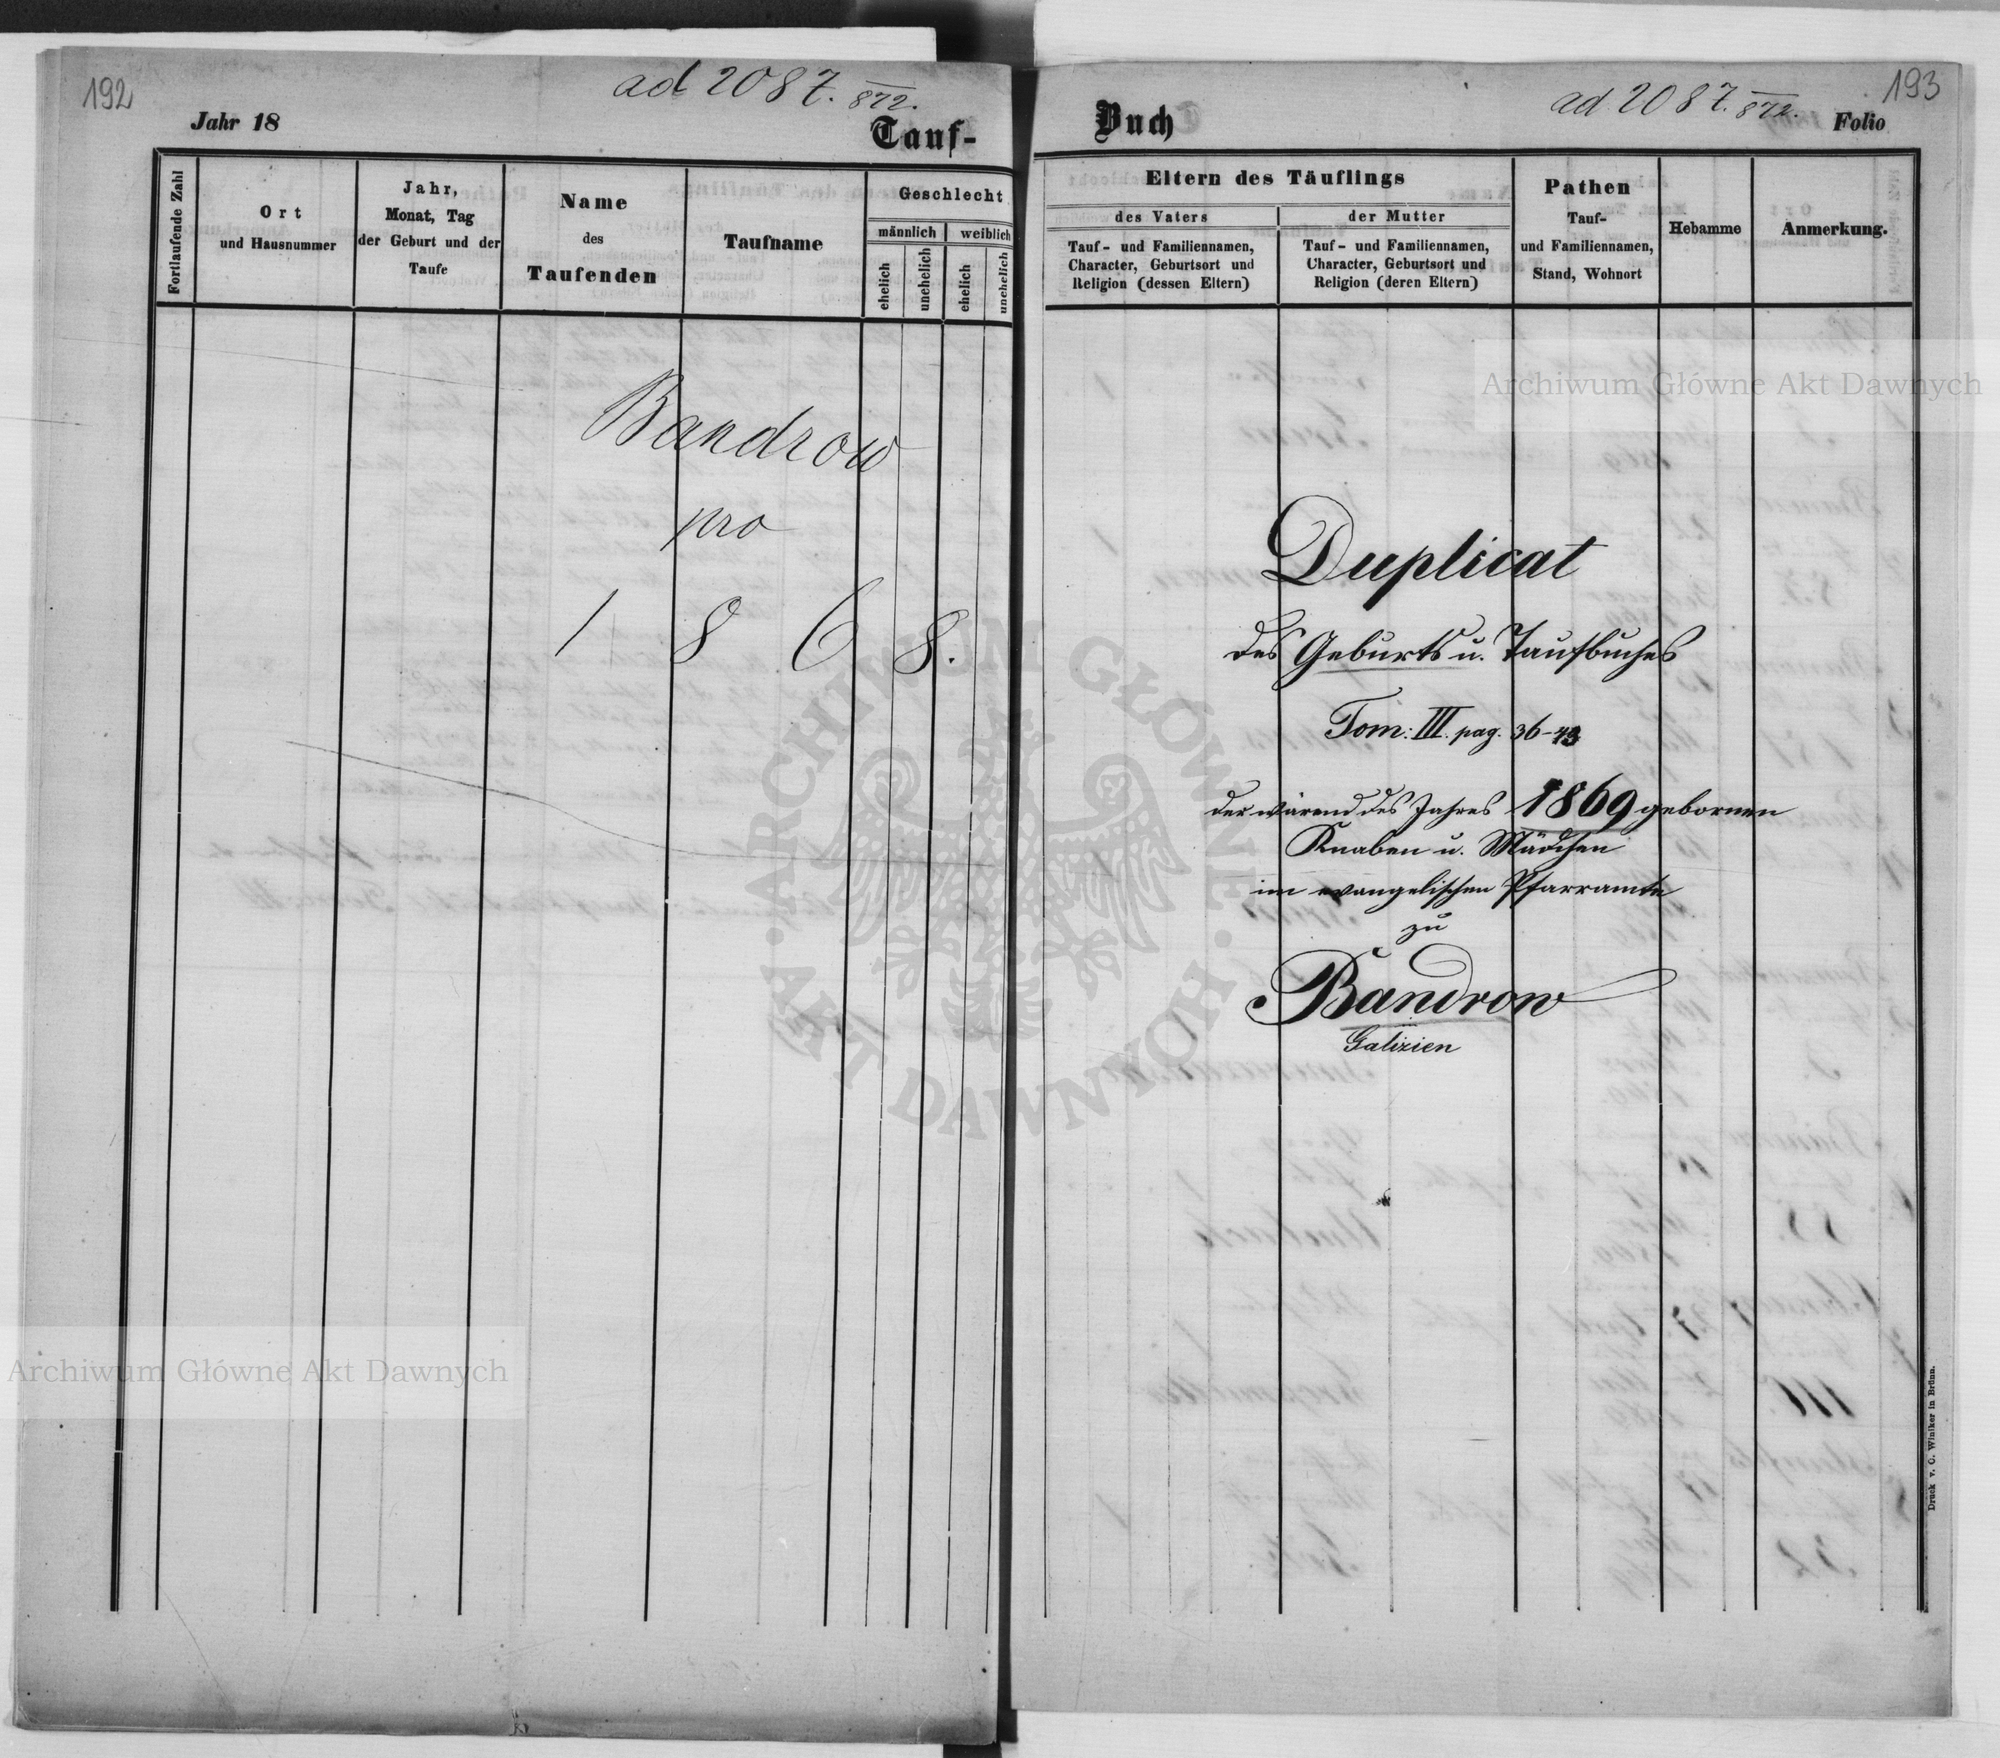 192
ad 2087. 872.
Jahr 18
Tauf-
Fortlaufende Zahl
Ort
und Hausnummer
Jahr,
Monat, Tag
der Geburt und der
Taufe
Name
des
Taufenden
Taufname
Geschlecht
männlich
weiblich
ehelich
unehelich
ehelich
unehelich
Bandrow
pro
1868.
193
ad 2087. 872.
Buch
Folio
Eltern des Täuflings
des Vaters
der Mutter
Tauf- und Familiennamen,
Character, Geburtsort und
Religion (dessen Eltern)
Tauf- und Familiennamen,
Character, Geburtsort und
Religion (deren Eltern)
Pathen
Tauf-
und Familiennamen,
Stand, Wohnort
Hebamme
Anmerkung.
Duplicat
des Geburts u. Taufbuches
Tom: III. pag. 36-43
der wärend des Jahres 1869 gebornen
Knaben u. Mädchen
im evangelischen Pfarramte
zu
Bandrow
Galizien
Druck v. C. Winiker in Brünn.
Archiwum Główne Akt Dawnych
Archiwum Główne Akt Dawnych
ARCHIWUM GŁÓWNE AKT DAWNYCH